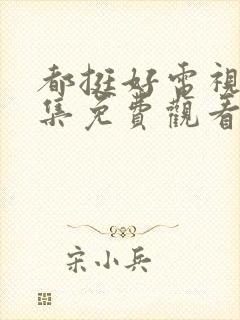 都挺好電視
集免費觀看
宋小兵